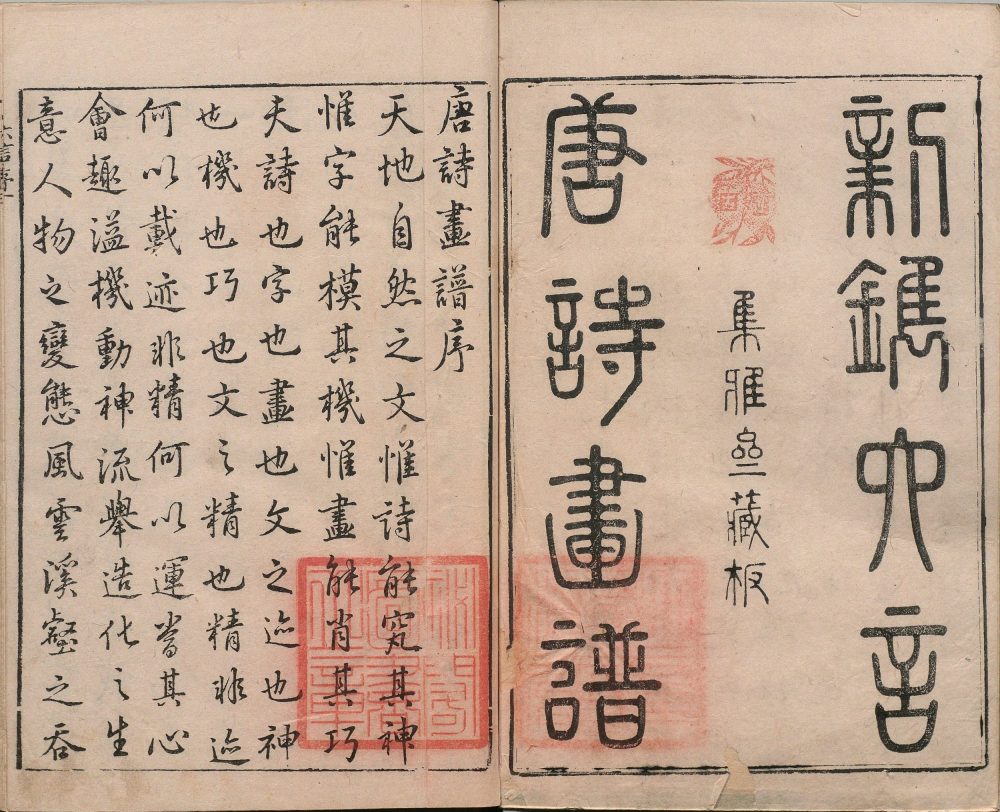 新鐫六言
集雅齋藏板
唐詩畫譜
唐詩畫譜序
天地自然之文惟詩能究其神
惟字能模其機惟畫能肖其巧
夫詩也字也畫也文之迹也神
也機也巧也文之精也精非迹
何以載迹非精何以運當其心
會趣溢機動神流舉造化之生
意人物之變態風雲溪壑之吞